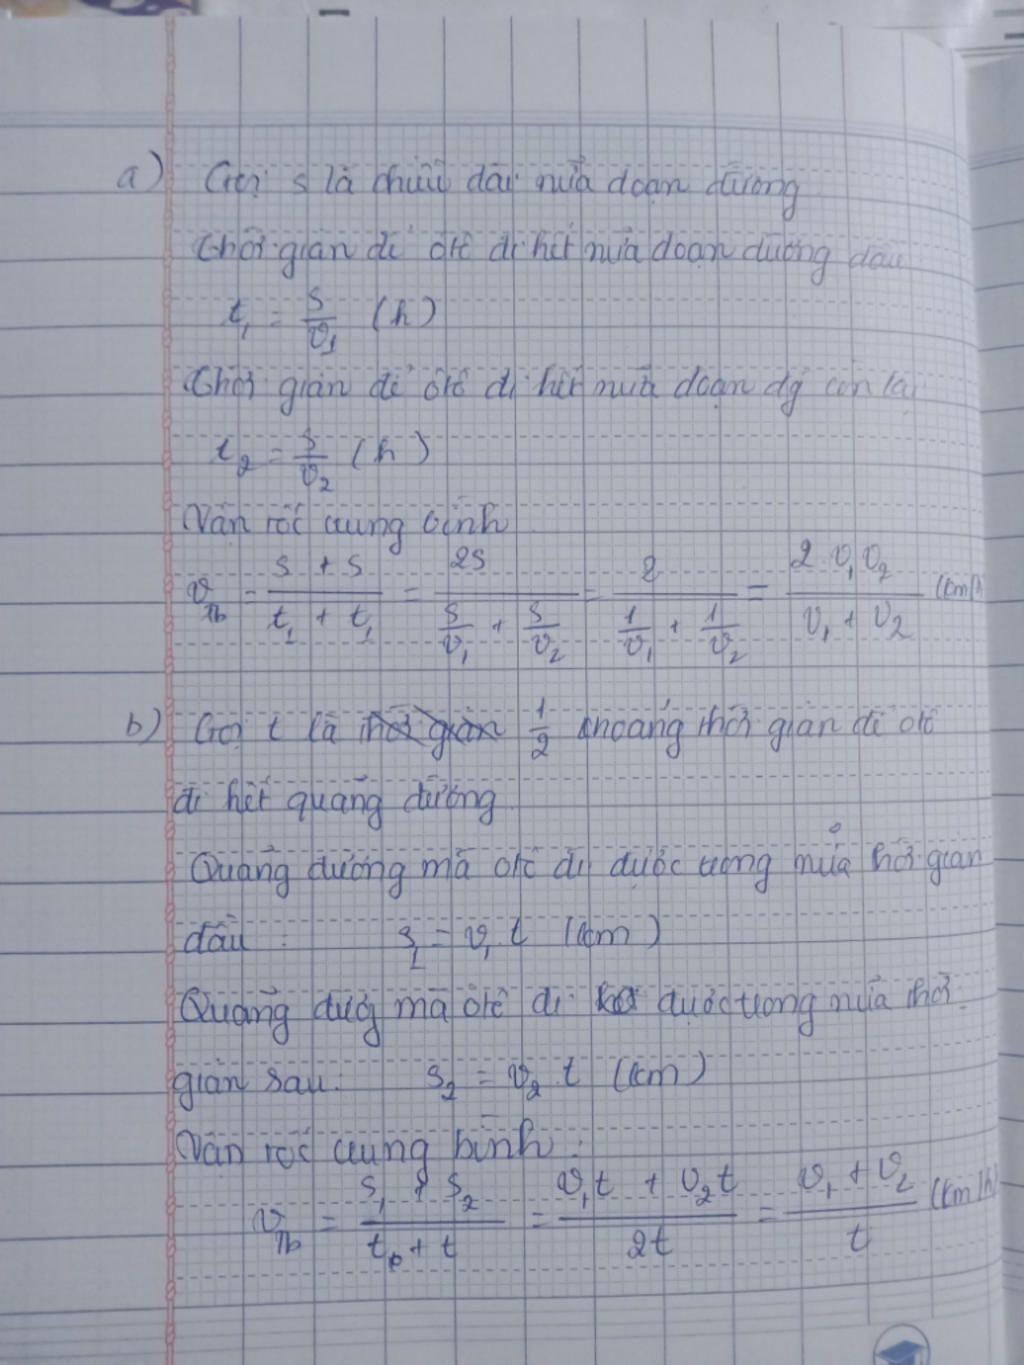 a) Gọi s là chiều dài nửa đoạn đường
Thời gian để ôtô đi hết nửa đoạn đường đầu
t₁ = s/v₁ (h)
Thời gian để ôtô đi hết nửa đoạn đg còn lại
t₂ = s/v₂ (h)
Vận tốc trung bình
v_Tb = (s + s)/(t₁ + t₁) = 2s/(s/v₁ + s/v₂) = 2/(1/v₁ + 1/v₂) = 2 v₁v₂/(v₁ + v₂) (km/h)
b) Gọi t là thời gian 1/2 khoảng thời gian để ôtô
đi hết quãng đường
Quãng đường mà ôtô đi được trong nửa thời gian
đầu : s₁ = v₁ t (km)
Quãng đườg mà ôtô đi được trong nửa thời
gian sau: s₂ = v₂ t (km)
Vận tốc trung bình :
v_Tb = (s₁ + s₂)/(t + t) = (v₁t + v₂t)/2t = (v₁ + v₂)/t (km/h)